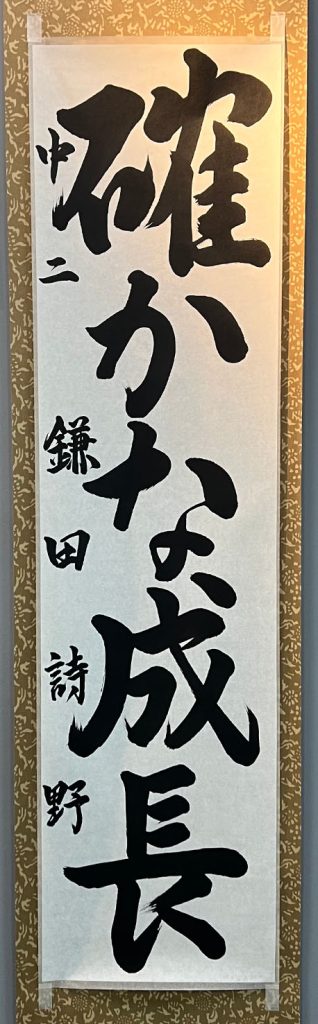 確かな成長
中二 鎌田詩野